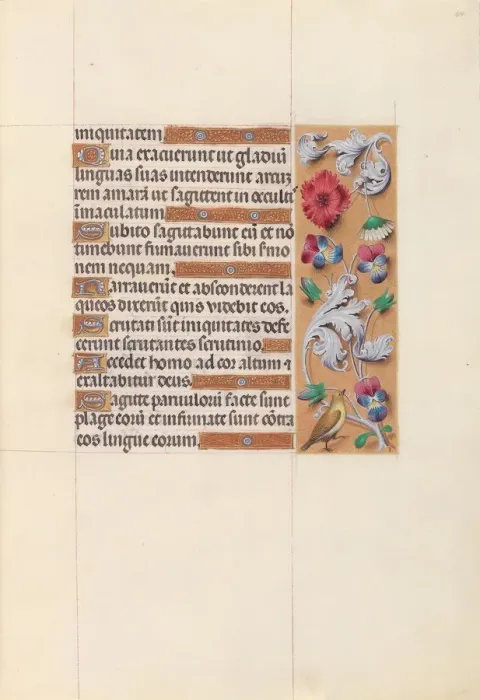 iniquitatem
Quia exacuerunt ut gladiū
linguas suas intenderunt arcuz
rem amarā ut sagittent in occult
īmaculatum
Subito sagittabunt eū et nō
timebunt firmauerunt sibi sermo
nem nequam.
Narrauerūt et absconderent la
queos dixerūt quis videbit eos.
Scrutati sūt iniquitates defe
cerunt scrutantes scrutinio.
Accedet homo ad cor altum et
exaltabitur deus.
Sagitte paruulorū facte sunt
plage eorū et infirmate sunt cōtra
eos lingue eorum.